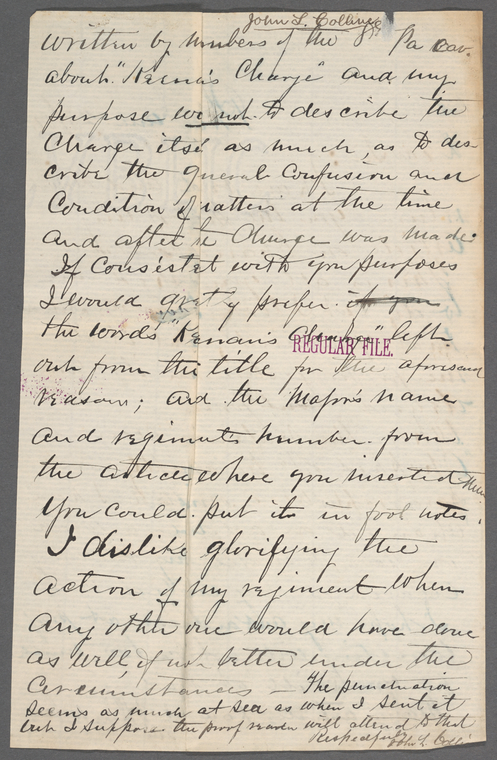 John L. Collins
written by members of the 8th Pa Cav.
about "Keenan's Charge" and my
purpose was not to describe the
Charge itself as much as to des-
cribe the general Confusion and
Condition of matters at the time
and after the Charge was made.
If Consistent with your purposes
I would greatly prefer if you
the words "Keenan's Charge" left
REGULAR FILE.
out from the title for the aforesaid
reasons; and the Major's name
and regiment's number from
the article where you inserted them
You could put it in foot notes.
I dislike glorifying the
action of my regiment when
any other one would have done
as well, if not better under the
Circumstances — The punctuation
seems as much at sea as when I sent it
but I suppose the proof reader will attend to that
Respectfully John L. Collins